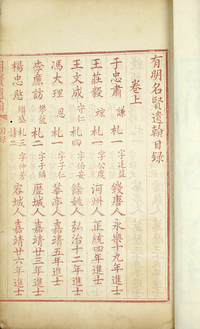 有明名賢遺翰目錄
卷上
于忠肅 謙 札一 字廷益 錢唐人 永樂十九年進士
王莊毅 竑 札一 字公度 河州人 正統四年進士
王文成 守仁 札四 字伯安 餘姚人 弘治十二年進士
馮大理 恩 札一 字子仁 華亭人 嘉靖五年進士
李廉訪 攀龍 札二 字于鱗 歷城人 嘉靖廿三年進士
楊忠愍 繼盛 札三 字仲芳 容城人 嘉靖廿六年進士